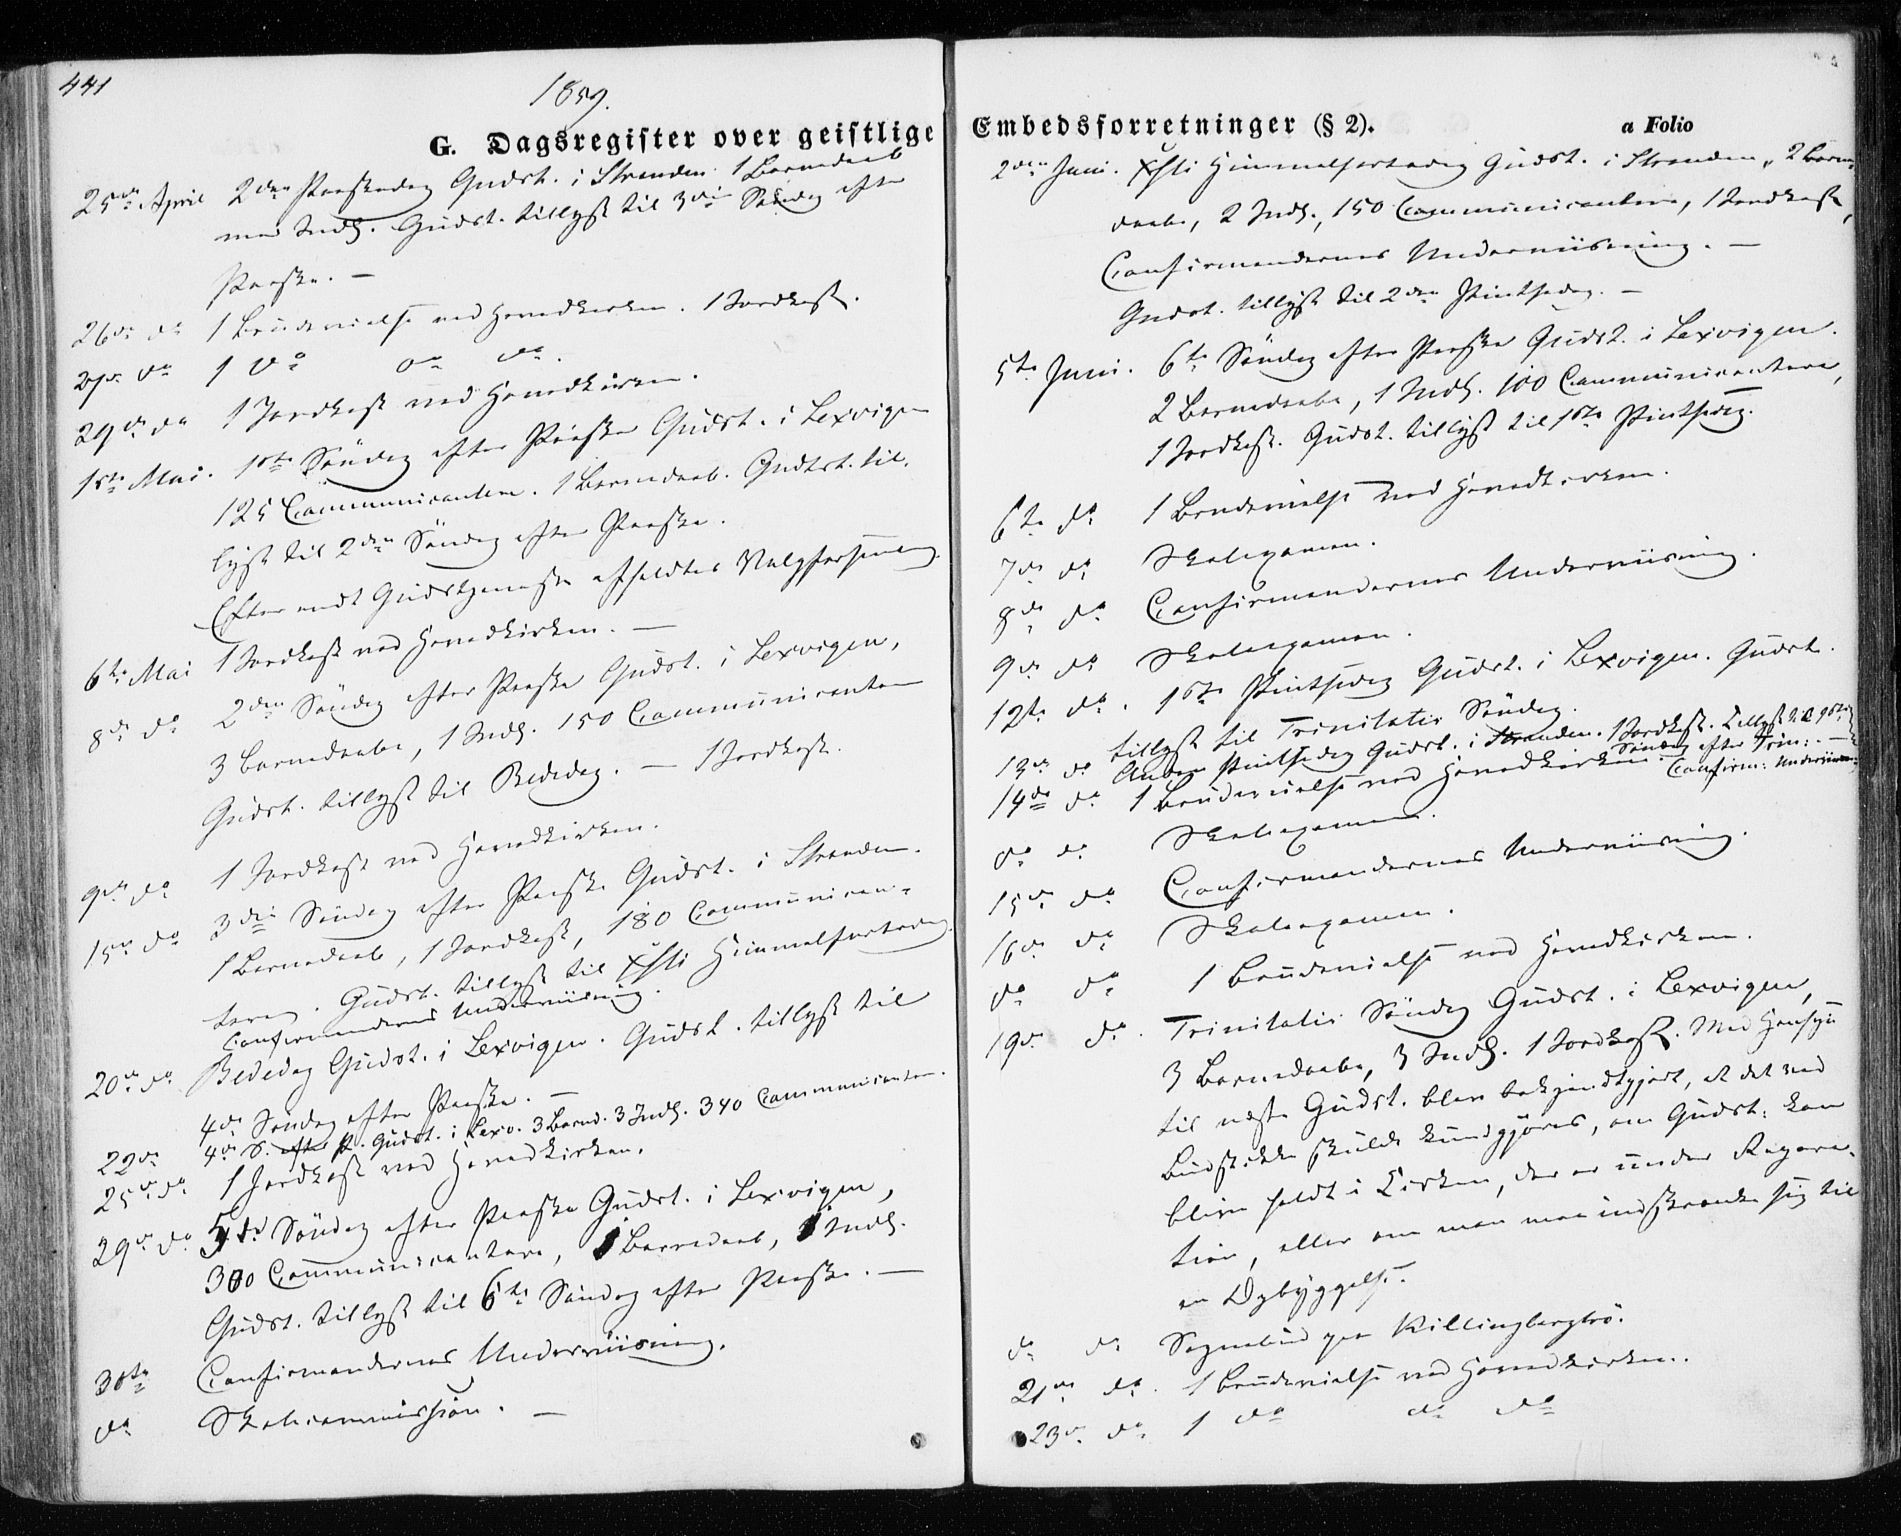 441
1859.
G. Dagsregister over geistlige
25de April 2den Paaskedag Gudst. i Stranden 1 Barnedaab
med Indl. Gudst. tillyst til 3die Søndag efter
Paaske. —
26de do 1 Brudevielse ved Hovedkirken. 1 Jordkast.
27de do 1 do do do.
29de do 1 Jordkast ved Hovedkirken.
1ste Mai. 1ste Søndag efter Paaske Gudst. i Lexvigen
125 Communicantere. 1 Barnedaab. Gudst. til-
lyst til 2den Søndag efter Paaske.
Efter endt Gudstjeneste afholdtes Valgforsamling
6te Mai 1 Jordkast ved Hovedkirken. —
8de do 2den Søndag efter Paaske Gudst. i Lexvigen,
3 Barnedaabe, 1 Indl. 150 Communicantere
Gudst. tillyst til Bededag. — 1 Jordkast.
9de do 1 Jordkast ved Hovedkirken.
15de do 3die Søndag efter Paaske Gudst. i Stranden.
1 Barnedaab, 1 Jordkast, 180 Communican-
tere. Gudst. tillyst til Xsti Himmelfartsdag.
Confirmandernes Underviisning.
20de do Bededag Gudst. i Lexvigen. Gudst. tillyst til
4de Søndag efter Paaske. —
22de 4de S. efter P. Gudst. i Lexv. 3 Barned. 3 Indl. 340 Communicanter.
25de do 1 Jordkast ved Hovedkirken.
29de do 5te Søndag efter Paaske Gudst. i Lexvigen,
300 Communicantere, 1 Barnedaab, 1 Indl.
Gudst. tillyst til 6te Søndag efter Paaske. —
30te Confirmandernes Underviisning.
do Skolecommission. —
Embedsforretninger (§ 2).
a Folio
2den Juni. Xsti Himmelfartsdag Gudst. i Stranden, 2 Barne-
daabe, 2 Indl., 150 Communicantere, 1 Jordkast,
Confirmandernes Underviisning. —
Gudst. tillyst til 2den Pintsedag. —
5te Juni. 6te Søndag efter Paaske Gudst. i Lexvigen.
2 Barnedaabe, 1 Indl. 100 Communicantere,
1 Jordkast. Gudst. tillyst til 1ste Pintsedag.
6te do 1 Brudevielse ved Hovedkirken.
7de do Skolexamen.
8de do Confirmandernes Underviisning.
9de do Skolexamen.
12te do. 1ste Pintsedag Gudst. i Lexvigen. Gudst.
tillyst til Trinitatis Søndag.
13de do Anden Pintsedag Gudst. i Stranden. 1 Jordkast. Tillyst til 1ste
Søndag efter Trin: —
14de do 1 Brudevielse ved Hovedkirken. Confirm: Underviisn:
do do Skolexamen.
15de do Confirmandernes Underviisning.
16de do Skolexamen.
do do 1 Brudevielse ved Hovedkirken.
19de do. Trinitatis Søndag Gudst. i Lexvigen,
3 Barnedaabe, 3 Indl. 1 Jordkast. Med Hensyn
til næste Gudst. blev bekjendtgjort, at det ved
Budstikke skulde kundgjøres, om Gudst: kan
blive holdt i Kirken, der er under Repara-
tion, eller om man maa indskrænke sig til
en Opbyggelse.
do do Sognebud paa Killingbergtrø.
21de do. 1 Brudevielse ved Hovedkirken.
23de do. 1 do do do